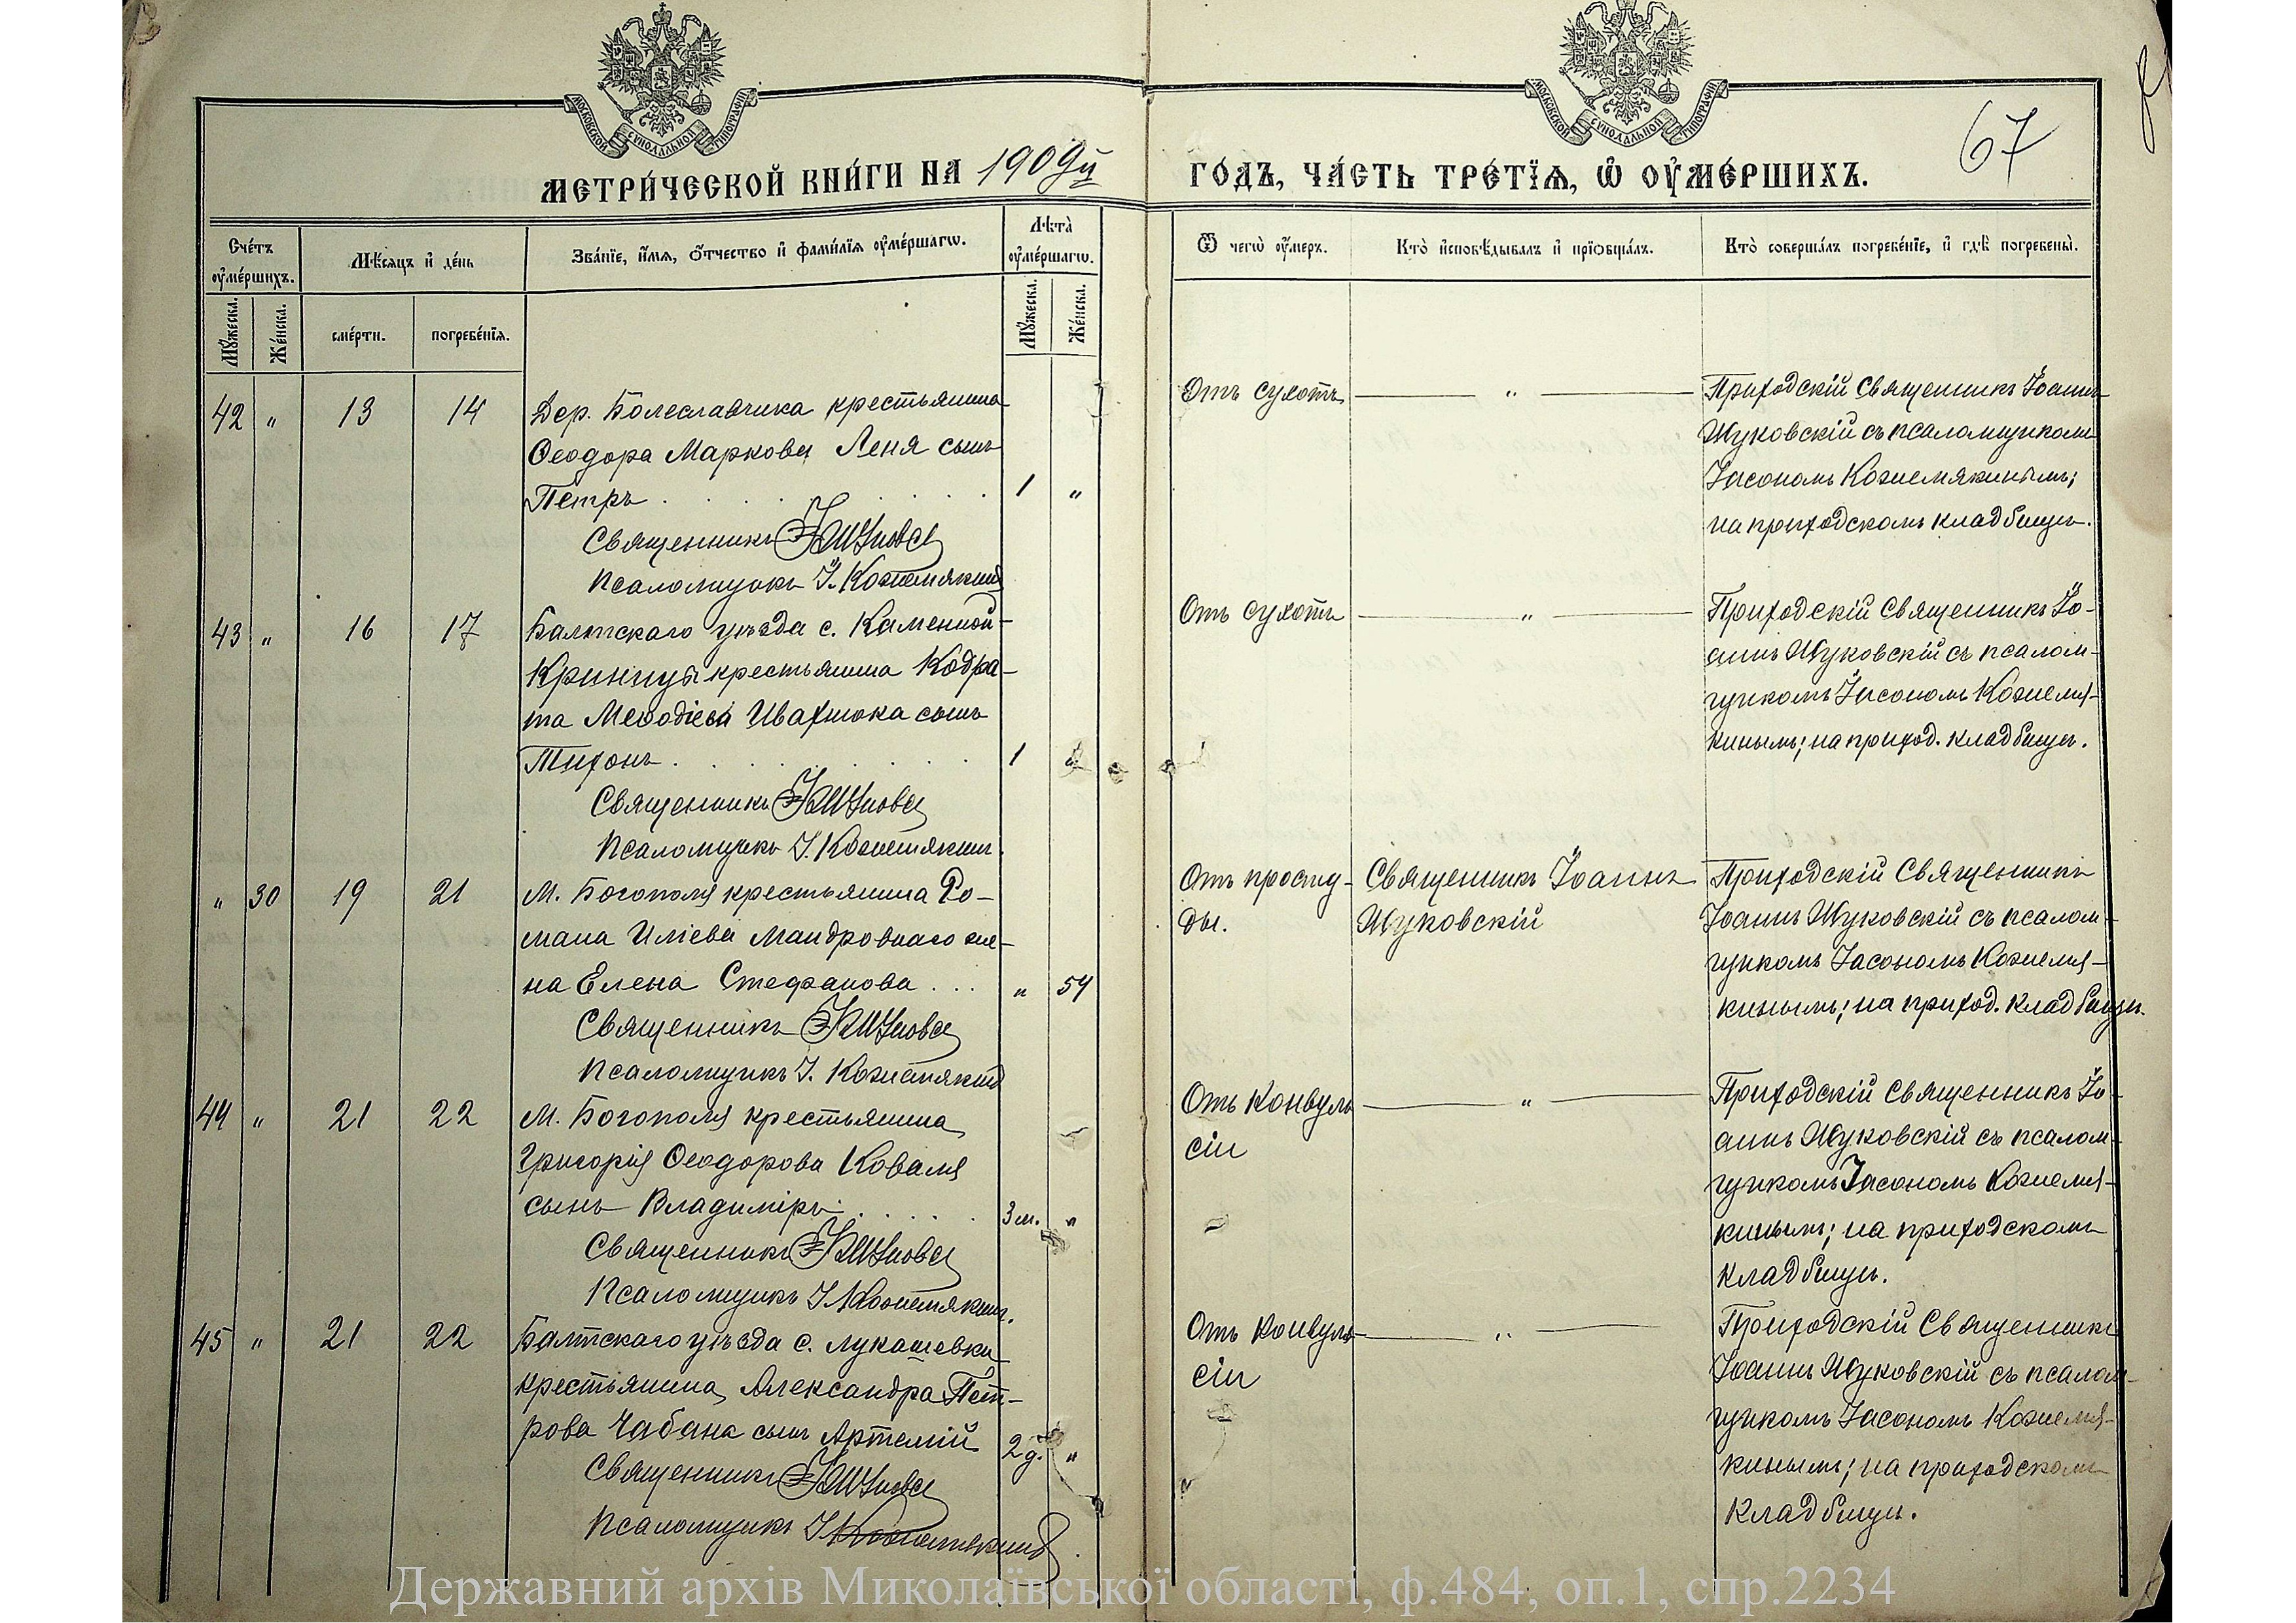 МОСКОВСКОЙ СУНОДАЛЬНОЙ ТИПОГРАФІИ
МОСКОВСКОЙ СУНОДАЛЬНОЙ ТИПОГРАФІИ
67
МЕТРИ́ЧЕСКОЙ КНИ́ГИ НА 1909й ГО́ДЪ, ЧА́СТЬ ТРЕ́ТЇѦ, Ѡ҆ ОУ҆МЕ́РШИХЪ.
Сче́тъ оу҆ме́ршихъ.
Мꙋ́жеска.
Же́нска.
Мѣ́сѧцъ и҆ де́нь
сме́рти.
погребе́нїѧ.
Зва́нїе, и҆́мѧ, ѻ҆́тчество и҆ фами́лїѧ оу҆ме́ршагѡ.
Лѣ́та̀ оу҆ме́ршагѡ.
Мꙋ́жеска.
Же́нска.
Ѿ чегѡ̀ оу҆́меръ.
Кто̀ и҆сповѣ́дывалъ и҆ прїѡбща́лъ.
Кто̀ соверша́лъ погребе́нїе, и҆ гдѣ̀ погребены̀.
42 „ 13 14
Дер. Болеславчика крестьянина
Ѳеодора Маркова Леня сынъ
Петръ . . . . . . 1 „
Священникъ
Псаломщикъ І. Кожемякинъ
Отъ сухотъ „
Приходскій Священникъ Іоаннъ
Жуковскій съ псаломщикомъ
Іасономъ Кожемякинымъ;
на приходскомъ кладбищѣ.
43 „ 16 17
Балтскаго уѣзда с. Каменной-
Криницы крестьянина Кодра-
та Меѳодіева Ивахнюка сынъ
Тихонъ . . . . . . 1
Священникъ
Псаломщикъ І. Кожемякинъ
Отъ сухотъ „
Приходскій Священникъ Іо-
аннъ Жуковскій съ псалом-
щикомъ Іасономъ Кожемя-
кинымъ; на приход. кладбищѣ.
„ 30 19 21
М. Богополя крестьянина Ро-
мана Иліева Мандровнаго же-
на Елена Стефанова . . . „ 54
Священникъ
Псаломщикъ І. Кожемякинъ
Отъ просту-
ды.
Священникъ Іоаннъ
Жуковскій
Приходскій Священникъ
Іоаннъ Жуковскій съ псалом-
щикомъ Іасономъ Кожемя-
кинымъ; на приход. кладбищѣ.
44 „ 21 22
М. Богополя крестьянина
Григорія Ѳеодорова Коваля
сынъ Владиміръ . . . . . 3 м. „
Священникъ
Псаломщикъ І. Кожемякинъ.
Отъ конвуль
сіи
„
Приходскій Священникъ Іо-
аннъ Жуковскій съ псалом-
щикомъ Іасономъ Кожемя-
кинымъ; на приходскомъ
кладбищѣ.
45 „ 21 22
Балтскаго уѣзда с. Лукашевки
крестьянина Александра Пет-
рова Чабана сынъ Артемій 2 д. „
Священникъ
Псаломщикъ І Кожемякинъ
Отъ конвуль
сіи
„
Приходскій Священникъ
Іоаннъ Жуковскій съ псалом-
щикомъ Іасономъ Кожемя-
кинымъ; на приходскомъ
кладбищѣ.
Державний архів Миколаївської області, ф.484, оп.1, спр.2234